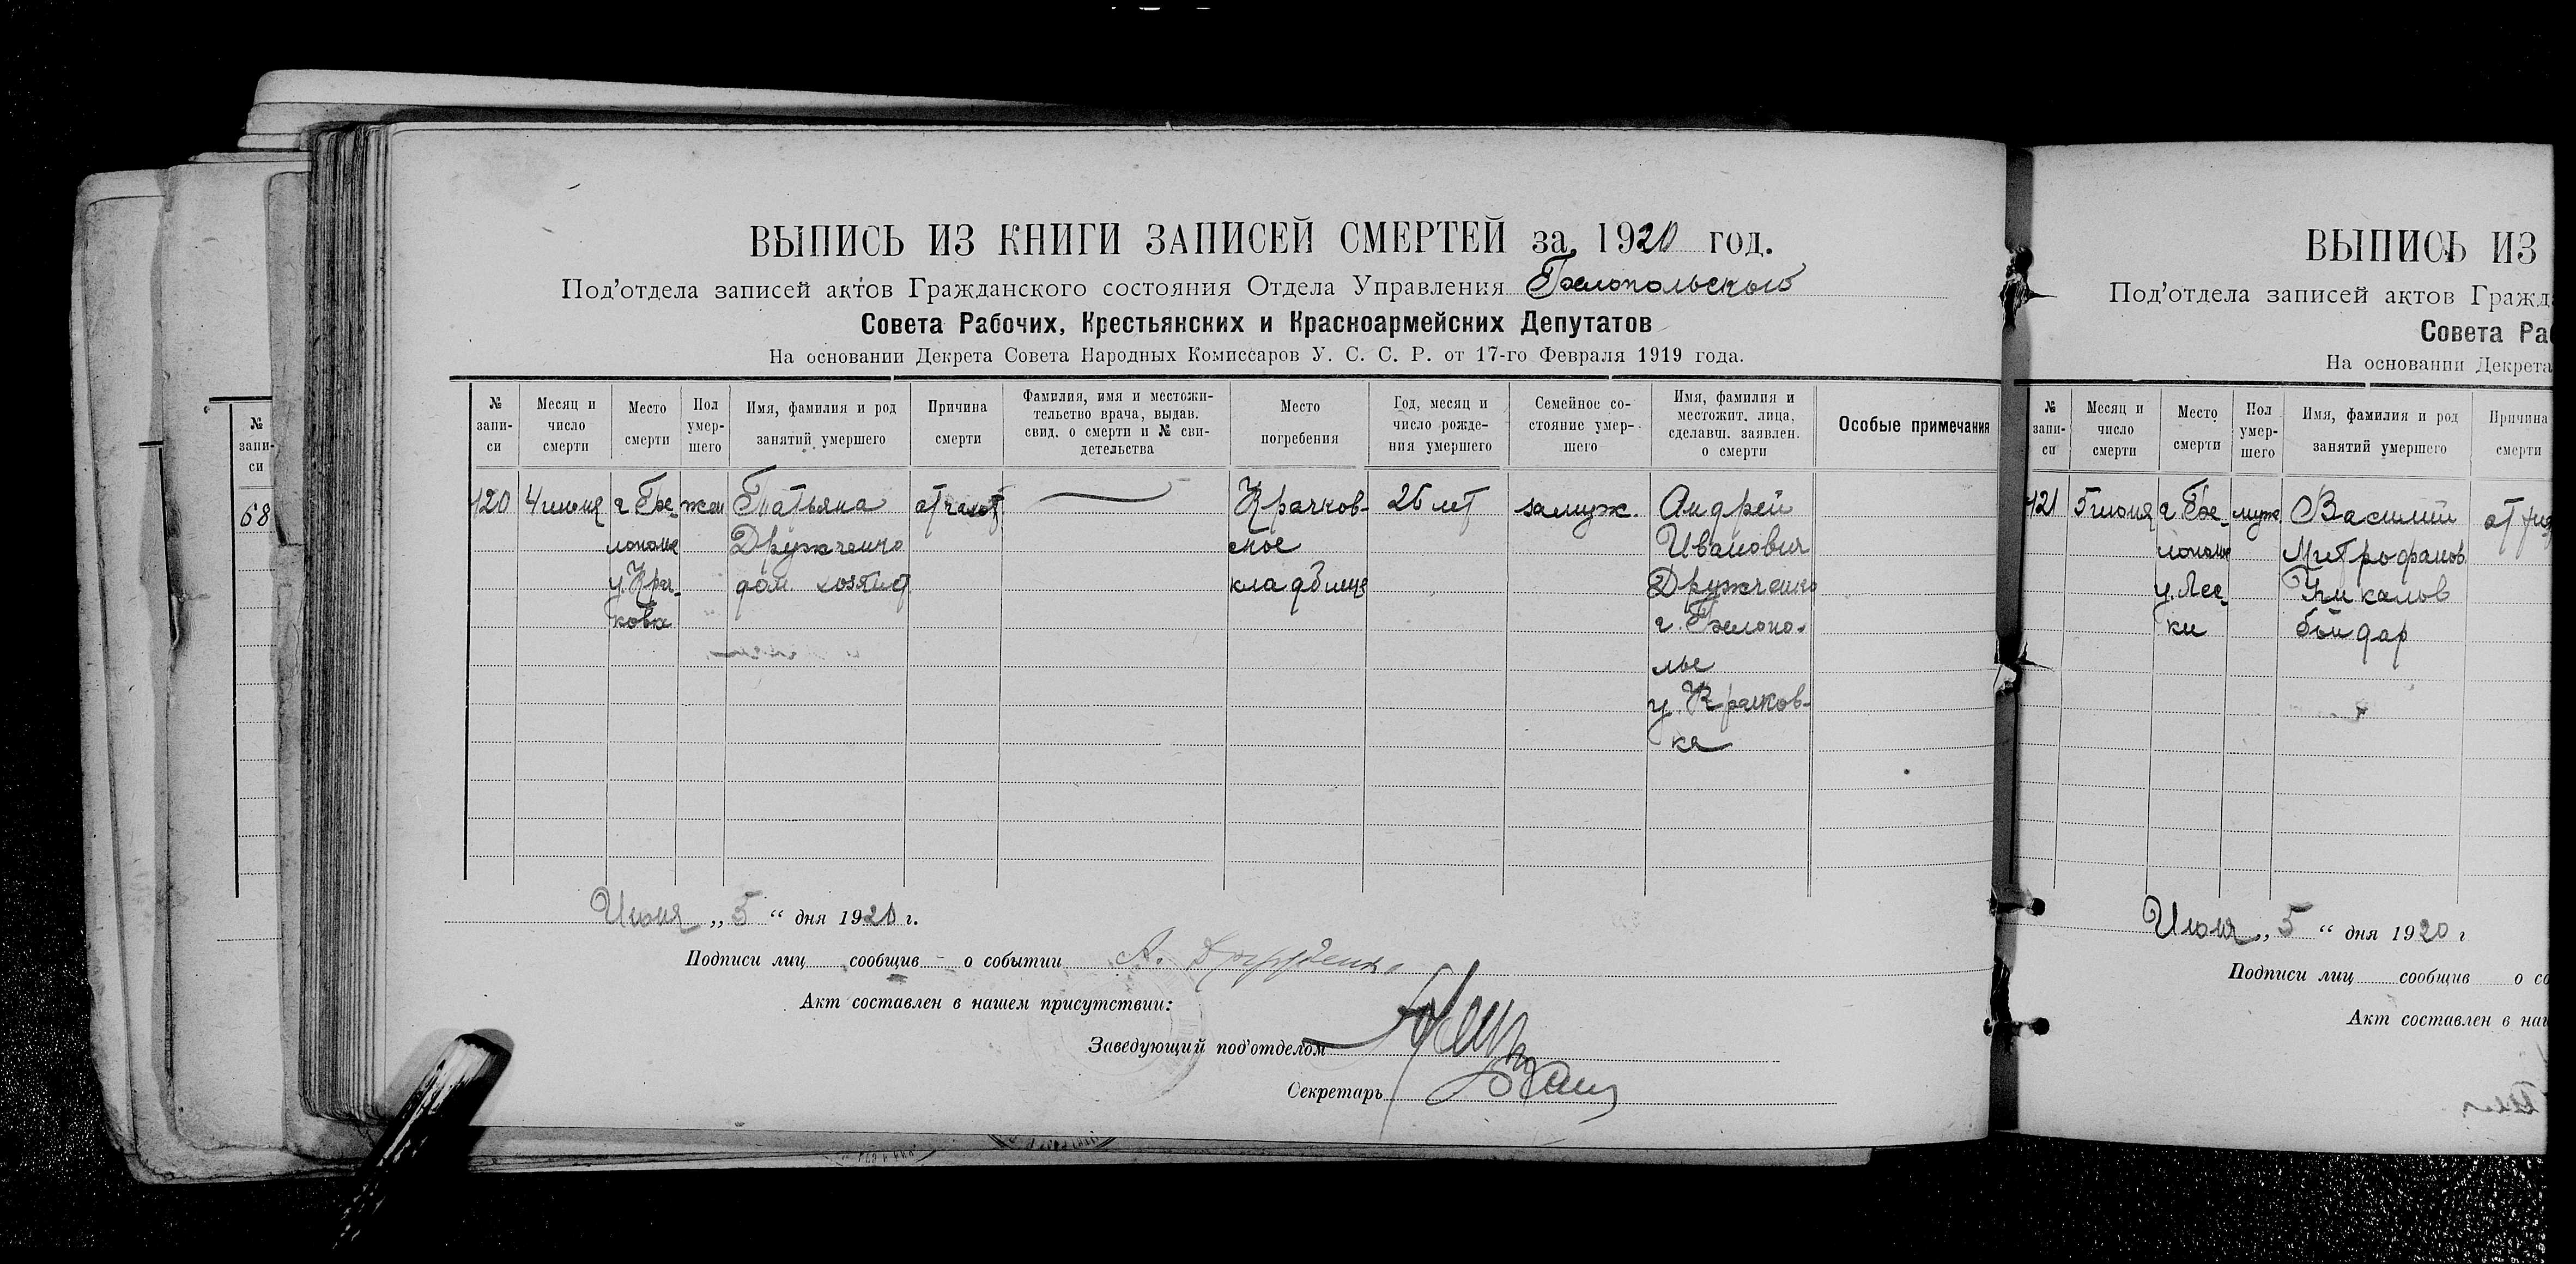 ВЫПИСЬ ИЗ КНИГИ ЗАПИСЕЙ СМЕРТЕЙ за 1920 год.
Под'отдела записей актов Гражданского состояния Отдела Управления Белопольского
Совета Рабочих, Крестьянских и Красноармейских Депутатов
На основании Декрета Совета Народных Комиссаров У. С. С. Р. от 17-го Февраля 1919 года.
№ запи-си
Месяц и число смерти
Место смерти
Пол умер-шего
Имя, фамилия и род занятий умершего
Причина смерти
Фамилия, имя и местожи-тельство врача, выдав. свид. о смерти и № сви-детельства
Место погребения
Год, месяц и число рожде-ния умершего
Семейное со-стояние умер-шего
Имя, фамилия и местожит. лица, сделавш. заявлен. о смерти
Особые примечания
120 4 июня г Бе- жен Татьяна от Крачков- лет замуж. Андрей
лополье Дружченко ское Иванович
дом. хозяйст кладбище Дружченко
ковка г. Белопо-
лье
у. Крачков-
ка
Июня „ 5 “ дня 1920 г.
Подписи лиц сообщив о событии А.
Акт составлен в нашем присутствии:
Заведующий под'отделом
Секретарь
№ запи-си
68
ВЫПИСЬ ИЗ
Под'отдела записей актов Гражд
Совета Ра
На основании Декрета
№ запи-си
Месяц и число смерти
Место смерти
Пол умер-шего
Имя, фамилия и род занятий умершего
Причина смерти
121 5 июня г. Бе- муж Василий от
лополье Митрофанов
ки бондар
Июня „ 5 “ дня 1920 г
Подписи лиц сообщив о со
Акт составлен в наш